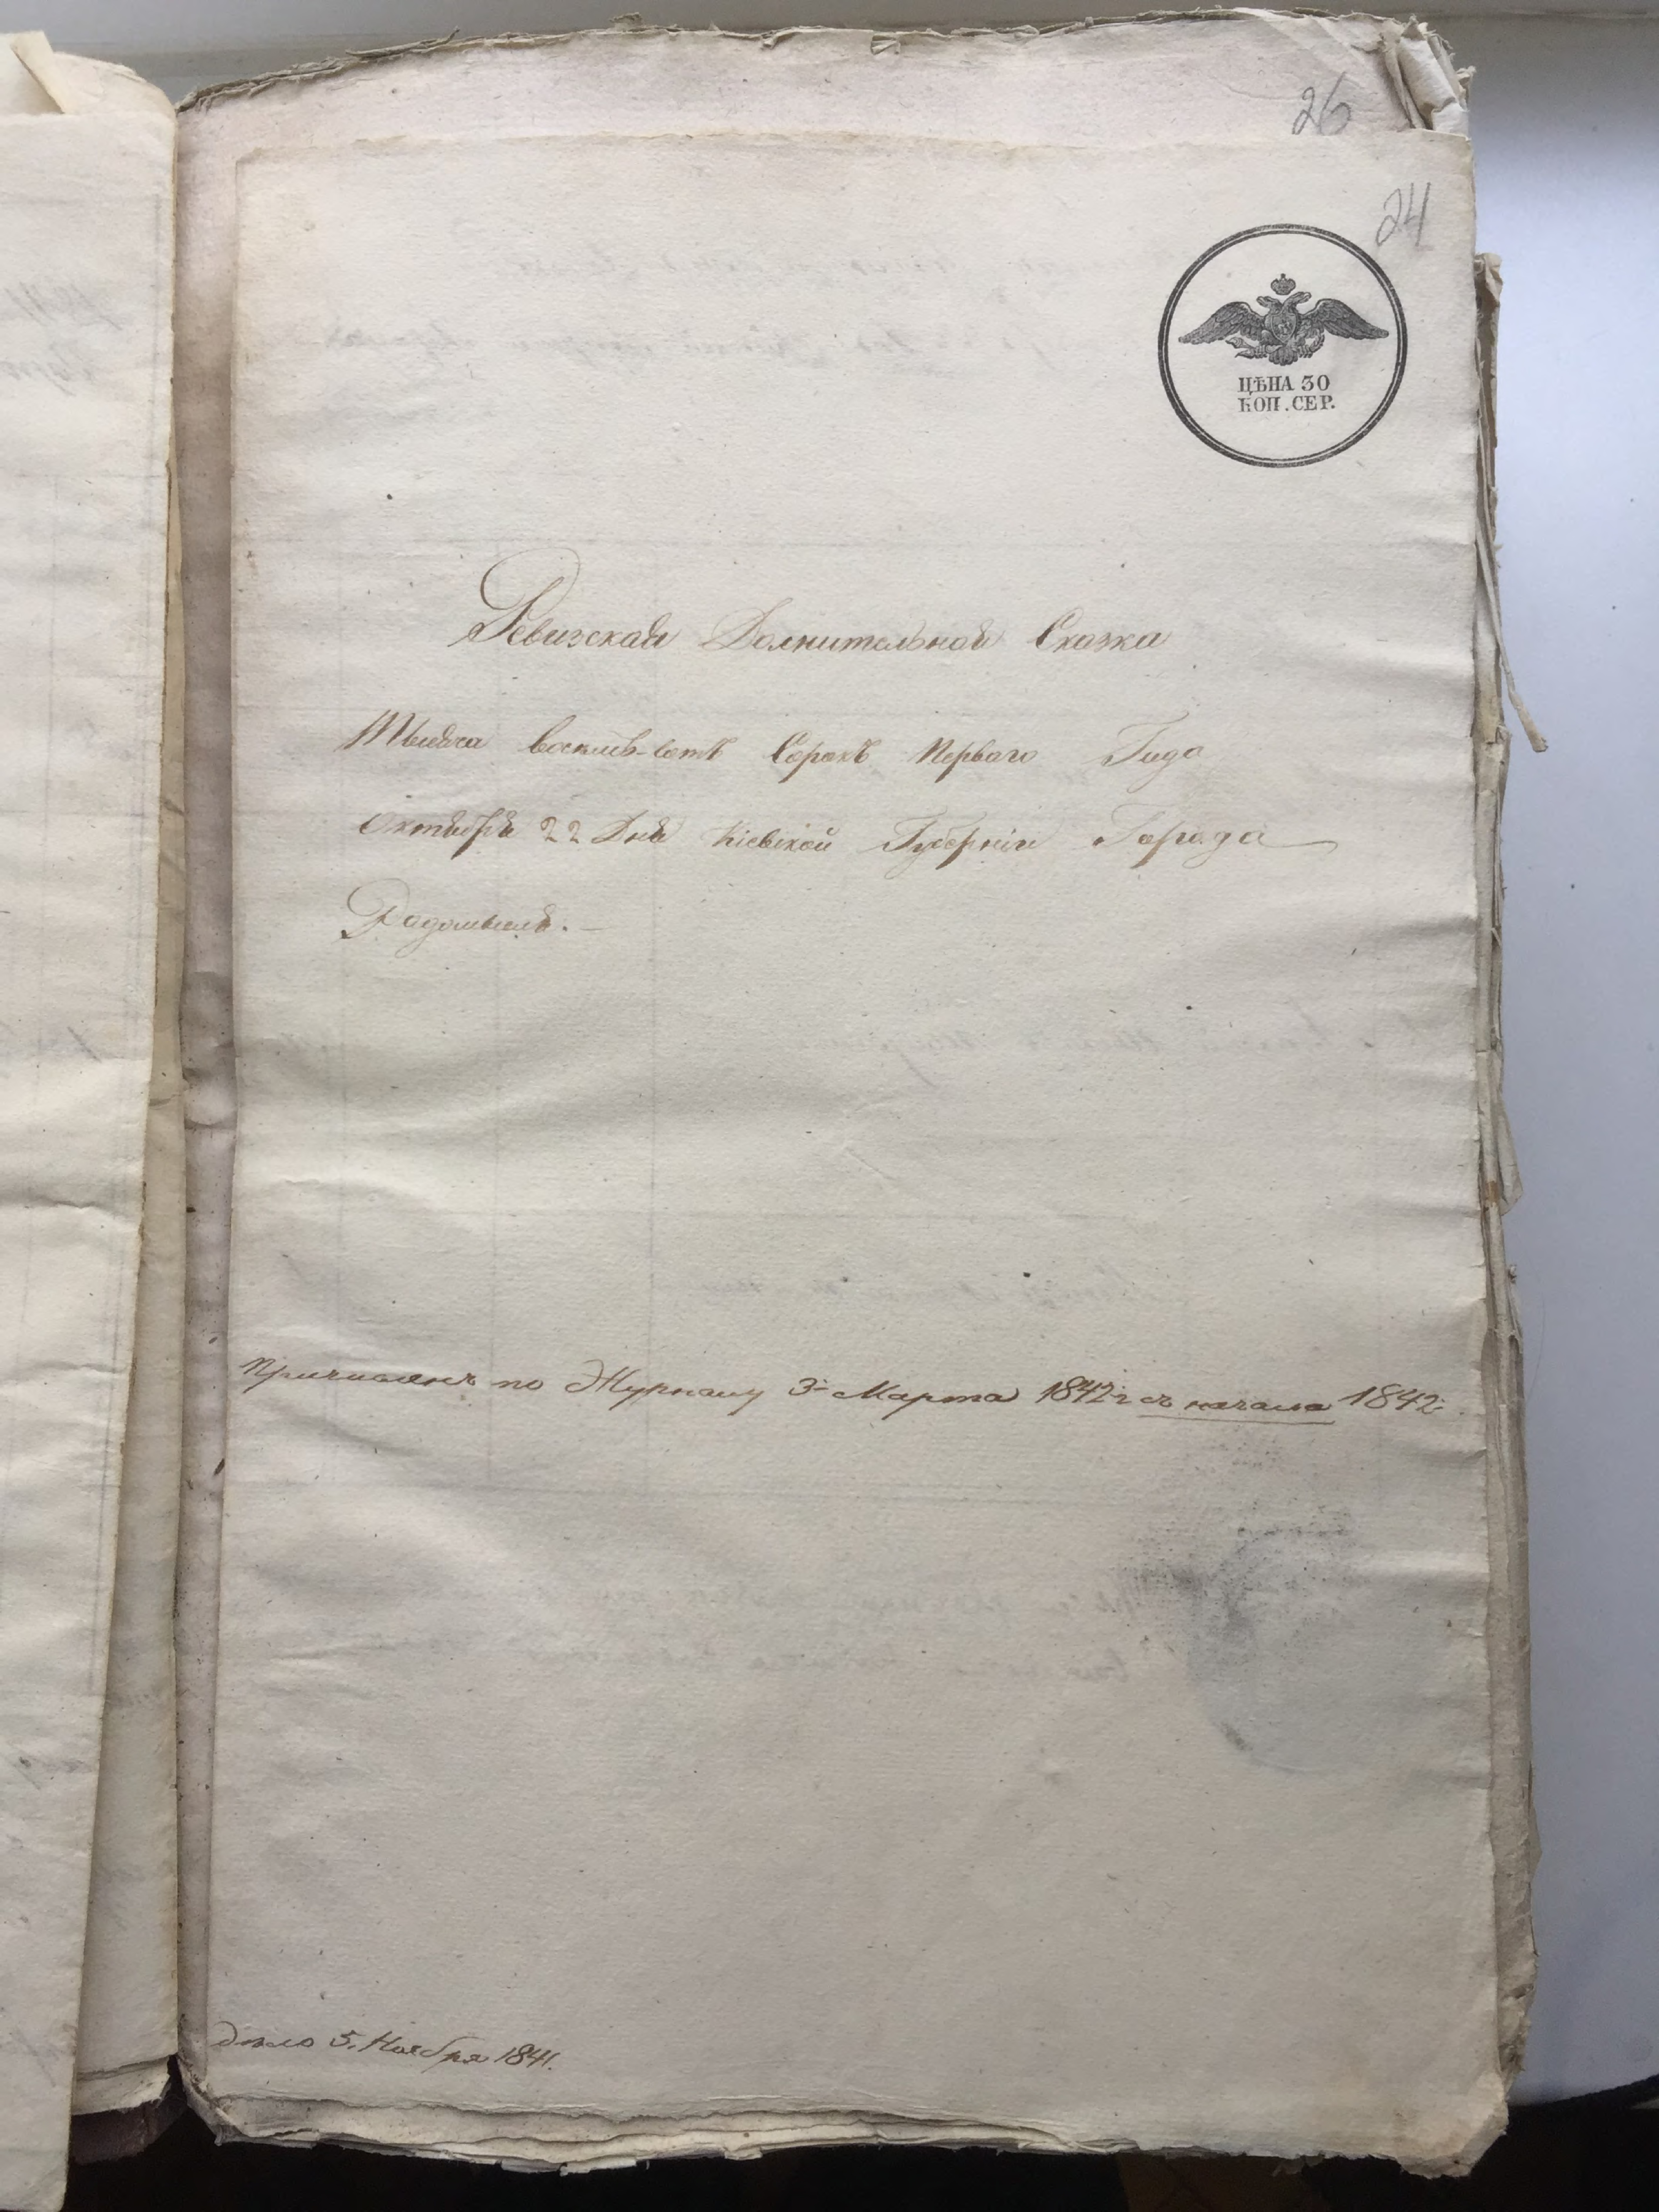 26
24
ЦѢНА 30
КОП. СЕР.
Ревизская Долнительная Сказка
Тысяча восемь-сотъ Сорокъ Перваго Года
Октября 22 Дня Кіевской Губерніи Города
Радомысля. —
Причисленъ по Журналу 3 Марта 1842 г съ начала 1842
дело 5. Ноября 1841.